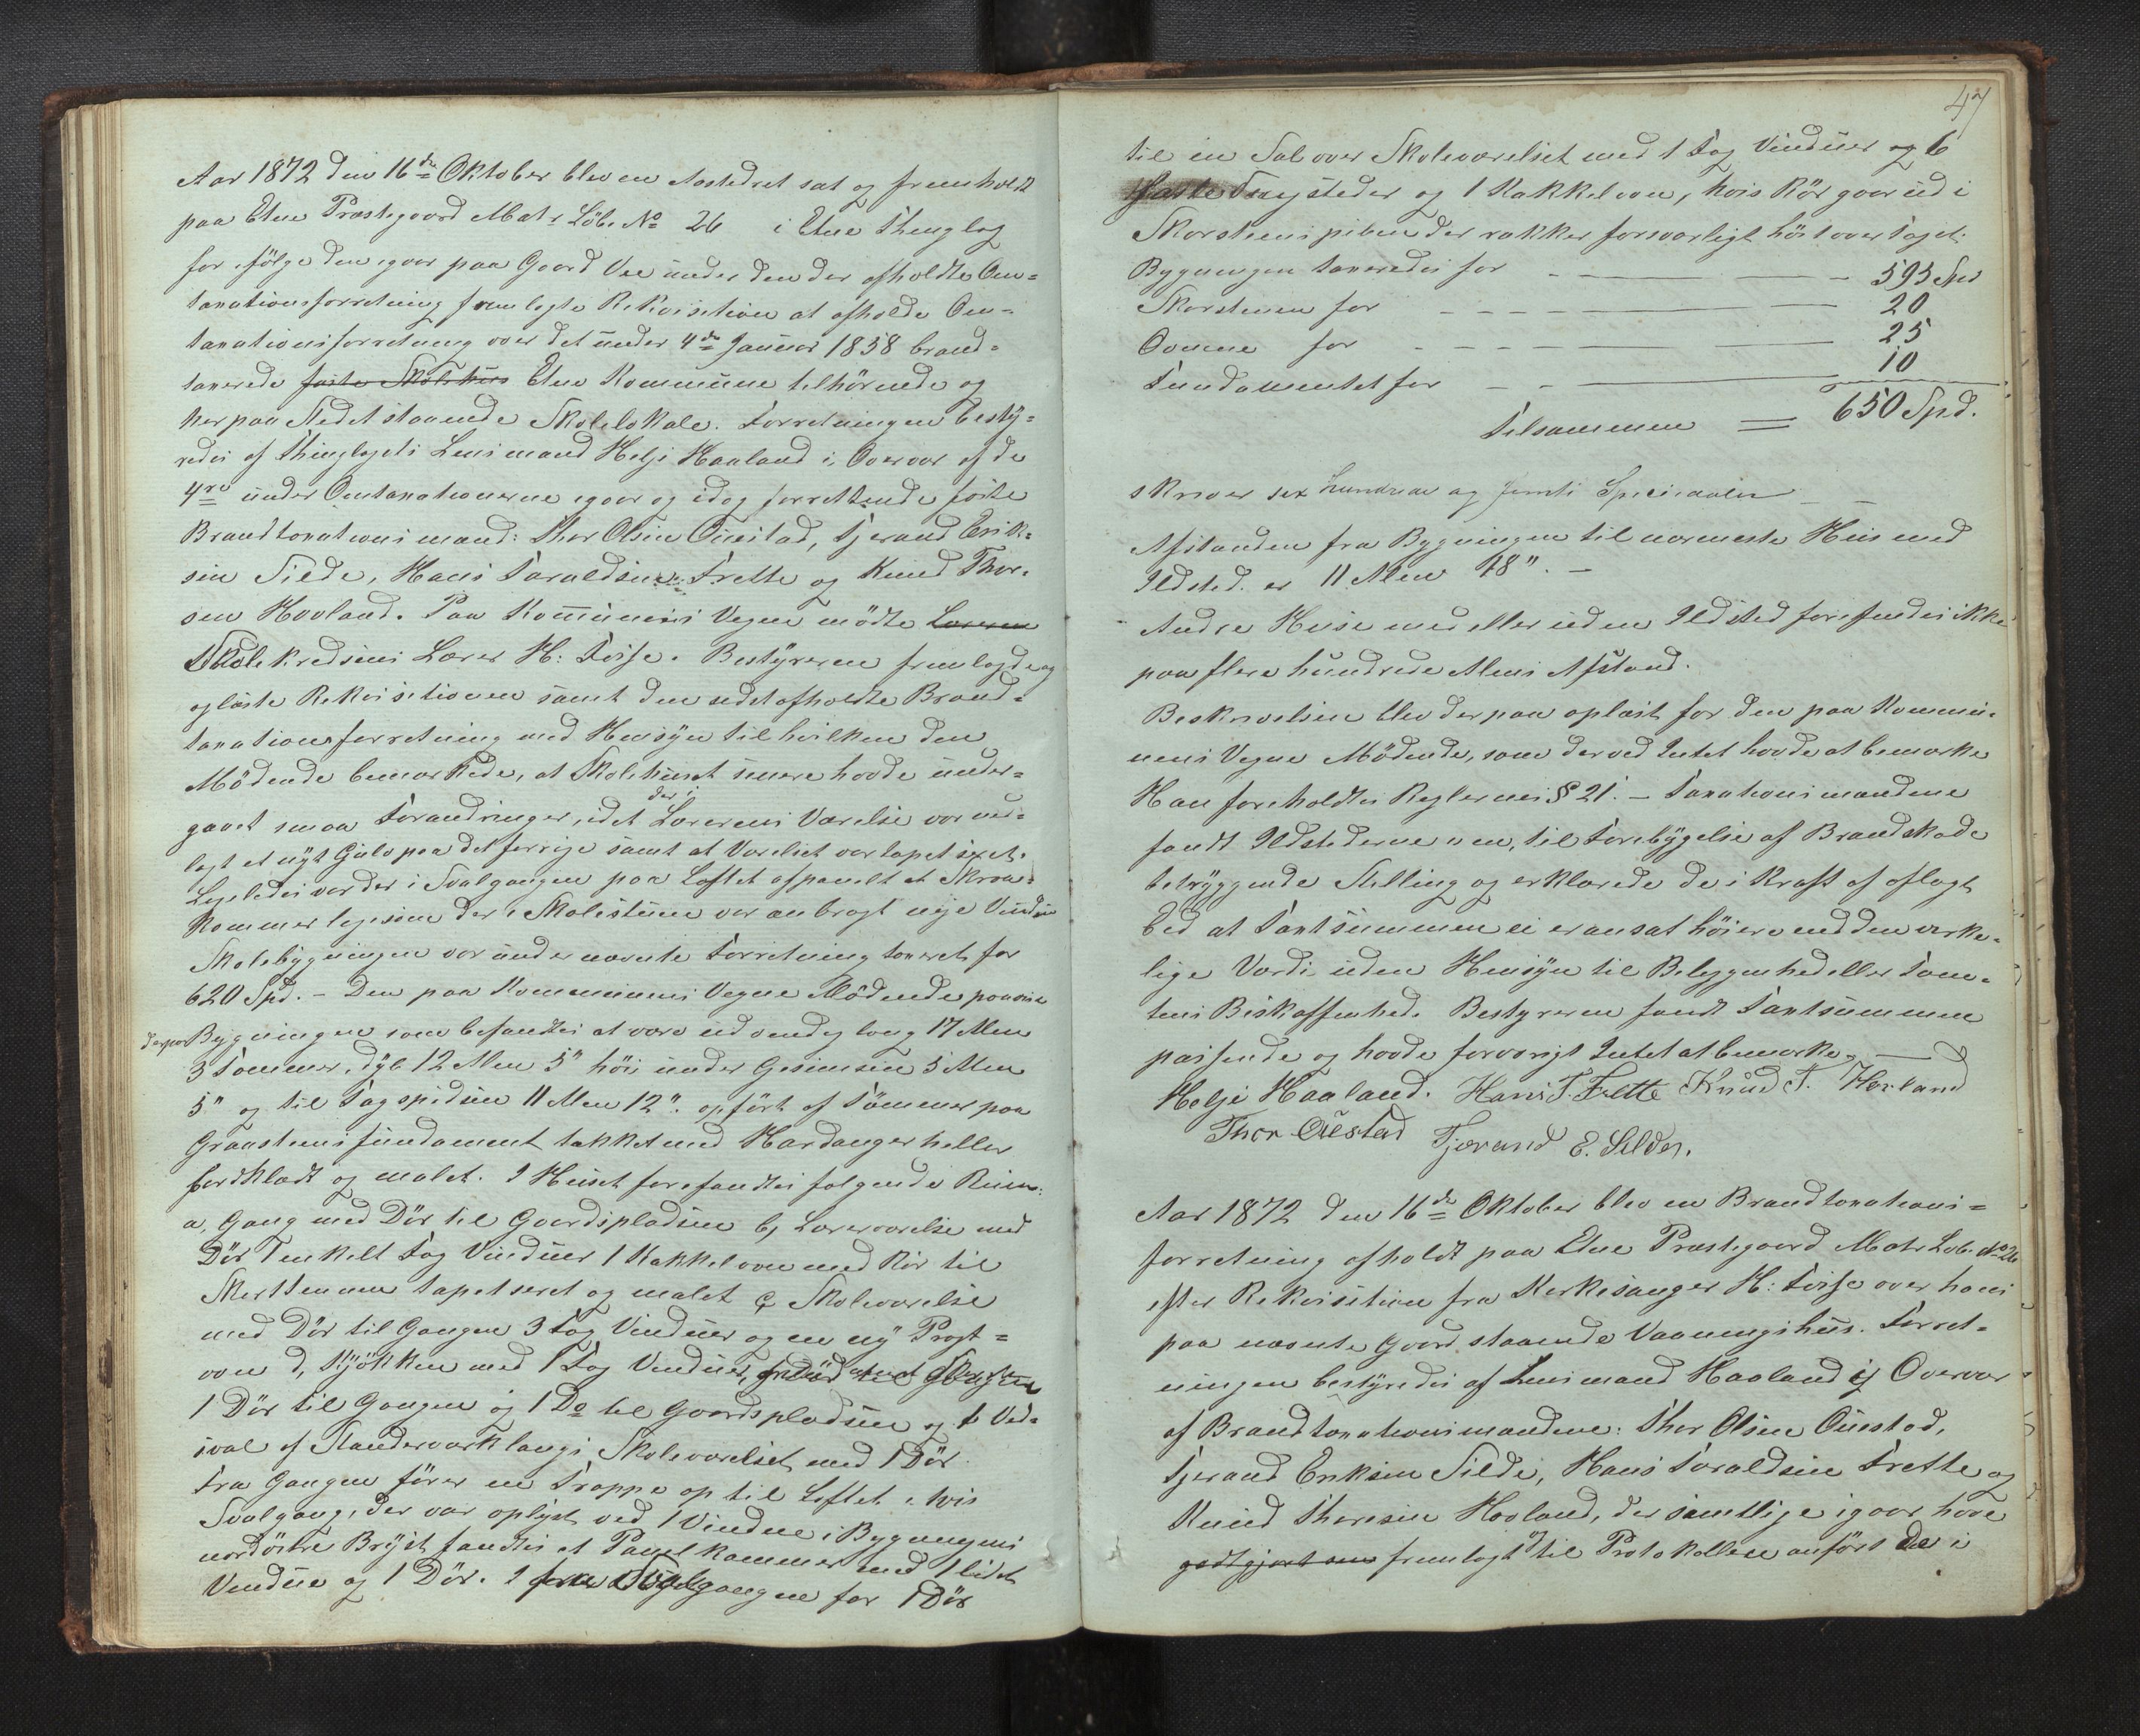 Aar 1872 den 16de Oktober blev en Aastedret sat og fremholdt
paa Etne Præstegaard Matr. Löb. No 26 i Etne Thinglag
for ifölge den igaar paa Gaard Vee under den der afholdte Om=
taxationsforretning fremlagte Rekvisition at afholde Om=
taxationsforretning over det under 4de Januar 1858 brand=
taxerede faste Skolehus Etne Kommune tilhörende og
her paa Stedet staaende Skolelokale. Forretningen besty=
redes af Thinglagets Lensmand Helje Haaland i Overvær af de
4re under Omtaxationerne igaar og idag forrettende faste
Brandtaxationsmænd: Thor Olsen Ouestad, Tjerand Erik=
sen Silde, Hans Taraldsen Frette og Knud Thor=
sen Hovland. Paa Kommunens Vegne mödte Læreren
Skolekredsens Lærer H: Tvisе. Bestyreren fremlagde og
oplæste Rekvisitionen samt den sidst afholdte Brand=
taxationsforretning med Hensyn til hvilken den
Mödende bemærkede, at Skolehuset senere havde under=
gaaet smaa Forandringer, idet der i Lærerens Værelse var ned=
lagt et nyt Gulv paa det forrige samt at Værelset var tapetseret.
Ligeledes var der i Svalgangen paa Loftet afpanelt et Skraa=
kammer ligesom der i Skolestuen var anbragt nye Vinduer
Skolebygningen var under nævnte Forretning taxeret for
620 Spd. – Den paa Kommunens Vegne Mödende paaviste
derpaa Bygningen som befandtes at være udvendig lang 17 Alen
3 Tommer, dyb 12 Alen 5" höi under Gesimsen 5 Alen
5" og til Tagspidsen 11 Alen 12". opfört af Tömmer paa
Graastensfundament takket med Hardangerheller
bordklædt og malet. I Huset forefandtes fölgende Rum:
a, Gang med Dör til Gaardspladsen b, Læreværelse med
Dör 1 enkelt Fag Vinduer 1 Kakkelovn med Rör til
Skorstenen tapetseret og malet c, Skoleværelse
med Dör til Gangen 3 Fag Vinduer og en ny Pragt=
ovn d, Kjökken med 1 Fag Vinduer,
1 Dör til Gangen og 1 Do til Gaardspladsen og 1 Ved=
sval af Standerværk langs Skoleværelset med 1 Dör.
Fra Gangen förer en Trappe op til Loftet i hvis
Svalgang, der var oplyst ved 1 Vindue i Bygningens
nordöstre Bryst fandtes et Panelkammer med 1 lidet
Vindue og 1 Dör. I Svalgangen for 1 Dör
47
til en Sal over Skoleværelset med 1 Fag Vinduer og 6
faste Sengsteder og 1 Kakkelovn, hvis Rör gaar ud i
Skorstenspiben der rækker forsvarligt höit over Taget.
Bygningen taxeredes for – 595 Spd
Skorstenen for – 20
Ovnene for – 25
Fundamentet for – 10
Tilsammen = 650 Spd.
skriver sex hundrede og femti Speciedaler
Afstanden fra Bygningen til nærmeste Huis med
Ildsted er 11 Alen 18". –
Andre Huse med eller uden Ildsted forefindes ikke
paa flere hundrede Alens Afstand.
Beskrivelsen blev derpaa oplæst for den paa Kommu=
nens Vegne Mödende, som derved Intet havde at bemærke
Han foreholdtes Reglernes § 21. – Taxationsmændene
fandt Ildstederne i en, til Forebyggelse af Brandskade
betryggende Stilling og erklærede de i Kraft af aflagt
Eed at Taxtsummen ei er ansat höiere end den virke=
lige Værdi uden Hensyn til Beliggenhed eller Tom=
tens Beskaffenhed. Bestyreren fandt Taxtsummen
passende og havde forövrigt Intet at bemærke. –
Helje Haaland. Hans T. Frette Knud T. Hovland
Thor Ouestad Tjærand E. Silder.
Aar 1872 den 16de Oktober blev en Brandtaxations=
forretning afholdt paa Etne Præstegaard Matr. Lob. No 26
efter Rekvisition fra Kirkesanger H: Tvise over hans
paa nævnte Gaard staaende Vaaningshus. Forret=
ningen bestyredes af Lensmand Haaland i Overvær
af Brandtaxationsmændene: Thor Olsen Ouestad,
Tjerand Eriksen Silde, Hans Taraldsen Frette og
Knud Thorsen Hovland, der samtlige igaar have
godtgjort som fremlagt til Protokollen anfört de i